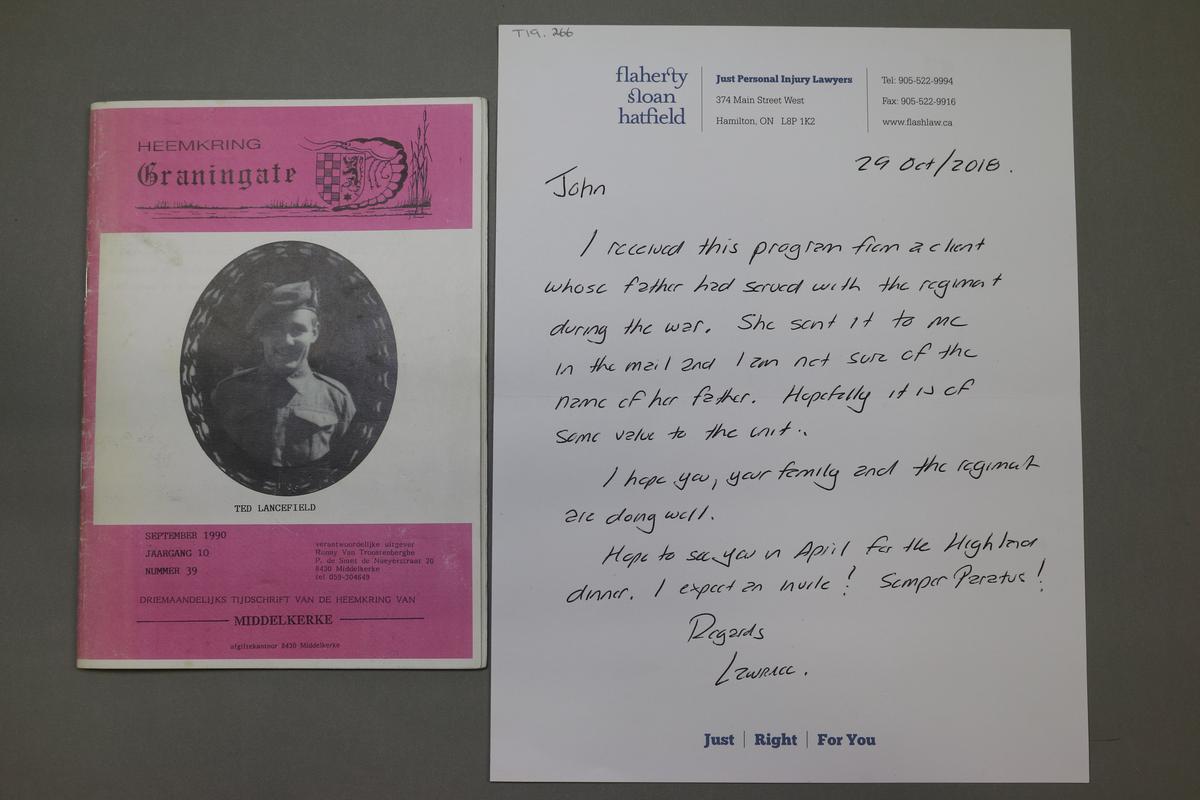 HEEMKRING
Graningate
TED LANCEFIELD
SEPTEMBER 1990
JAARGANG 10
NUMMER 39
verantwoordelijke uitgever
Ronny Van Troostenberghe
P. de Smet de Naeyerstraat 20
8430 Middelkerke
tel 059-304649
DRIEMAANDELIJKS TIJDSCHRIFT VAN DE HEEMKRING VAN
MIDDELKERKE
afgiftekantoor 8430 Middelkerke
T19.266
flaherty
sloan
hatfield
Just Personal Injury Lawyers
374 Main Street West
Hamilton, ON L8P 1K2
Tel: 905-522-9994
Fax: 905-522-9916
www.flashlaw.ca
29 Oct/2018.
John
I received this program from a client
whose father had served with the regiment
during the war. She sent it to me
in the mail and I am not sure of the
name of her father. Hopefully it is of
some value to the unit..
I hope you, your family and the regiment
are doing well.
Hope to see you in April for the Highland
dinner. I expect an invite! Semper Paratus!
Regards
Lawrence.
Just | Right | For You